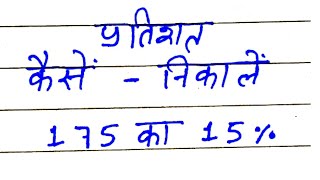 प्रतिशत
कैसें - निकालें
175 का 15%